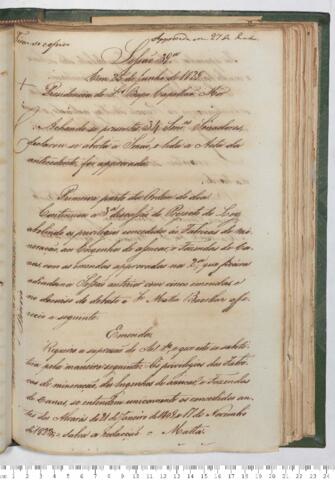 Approvada em 27 de Junho
Sessão 38ª
Em 25 de Junho de 1828
Presidencia do Sr. Bispo Capellão Mor
Achando-se presentes 34 Snres. Senadores,
declarou-se aberta a Sessão, e lida a Acta da
antecedente, foi approvada.
Primeira parte da Ordem do dia
Continuou a 3ª discussão do Projecto de Ley
abolindo os privilegios concedidos ás Fabricas de mi-
neração, aos Engenhos de assucar, e Fazendas de Ca-
nas com as emendas approvadas na 2ª, que ficára
adiada na Sessão anterior com
no decurso do debate o Sr. Matta Bacellar offe-
receo a seguinte
Emenda
Requeiro a supressão do Art. 1º, e que este se substi-
tua pela maneira seguinte: Os privilegios das Fabri-
cas de mineração, dos Engenhos de assucar, e Fazendas
de Canas, se entendem unicamente os concedidos an-
tes dos Alvarás de 21 de Janeiro de e 17 de Novembro
de salva a redacção. Matta